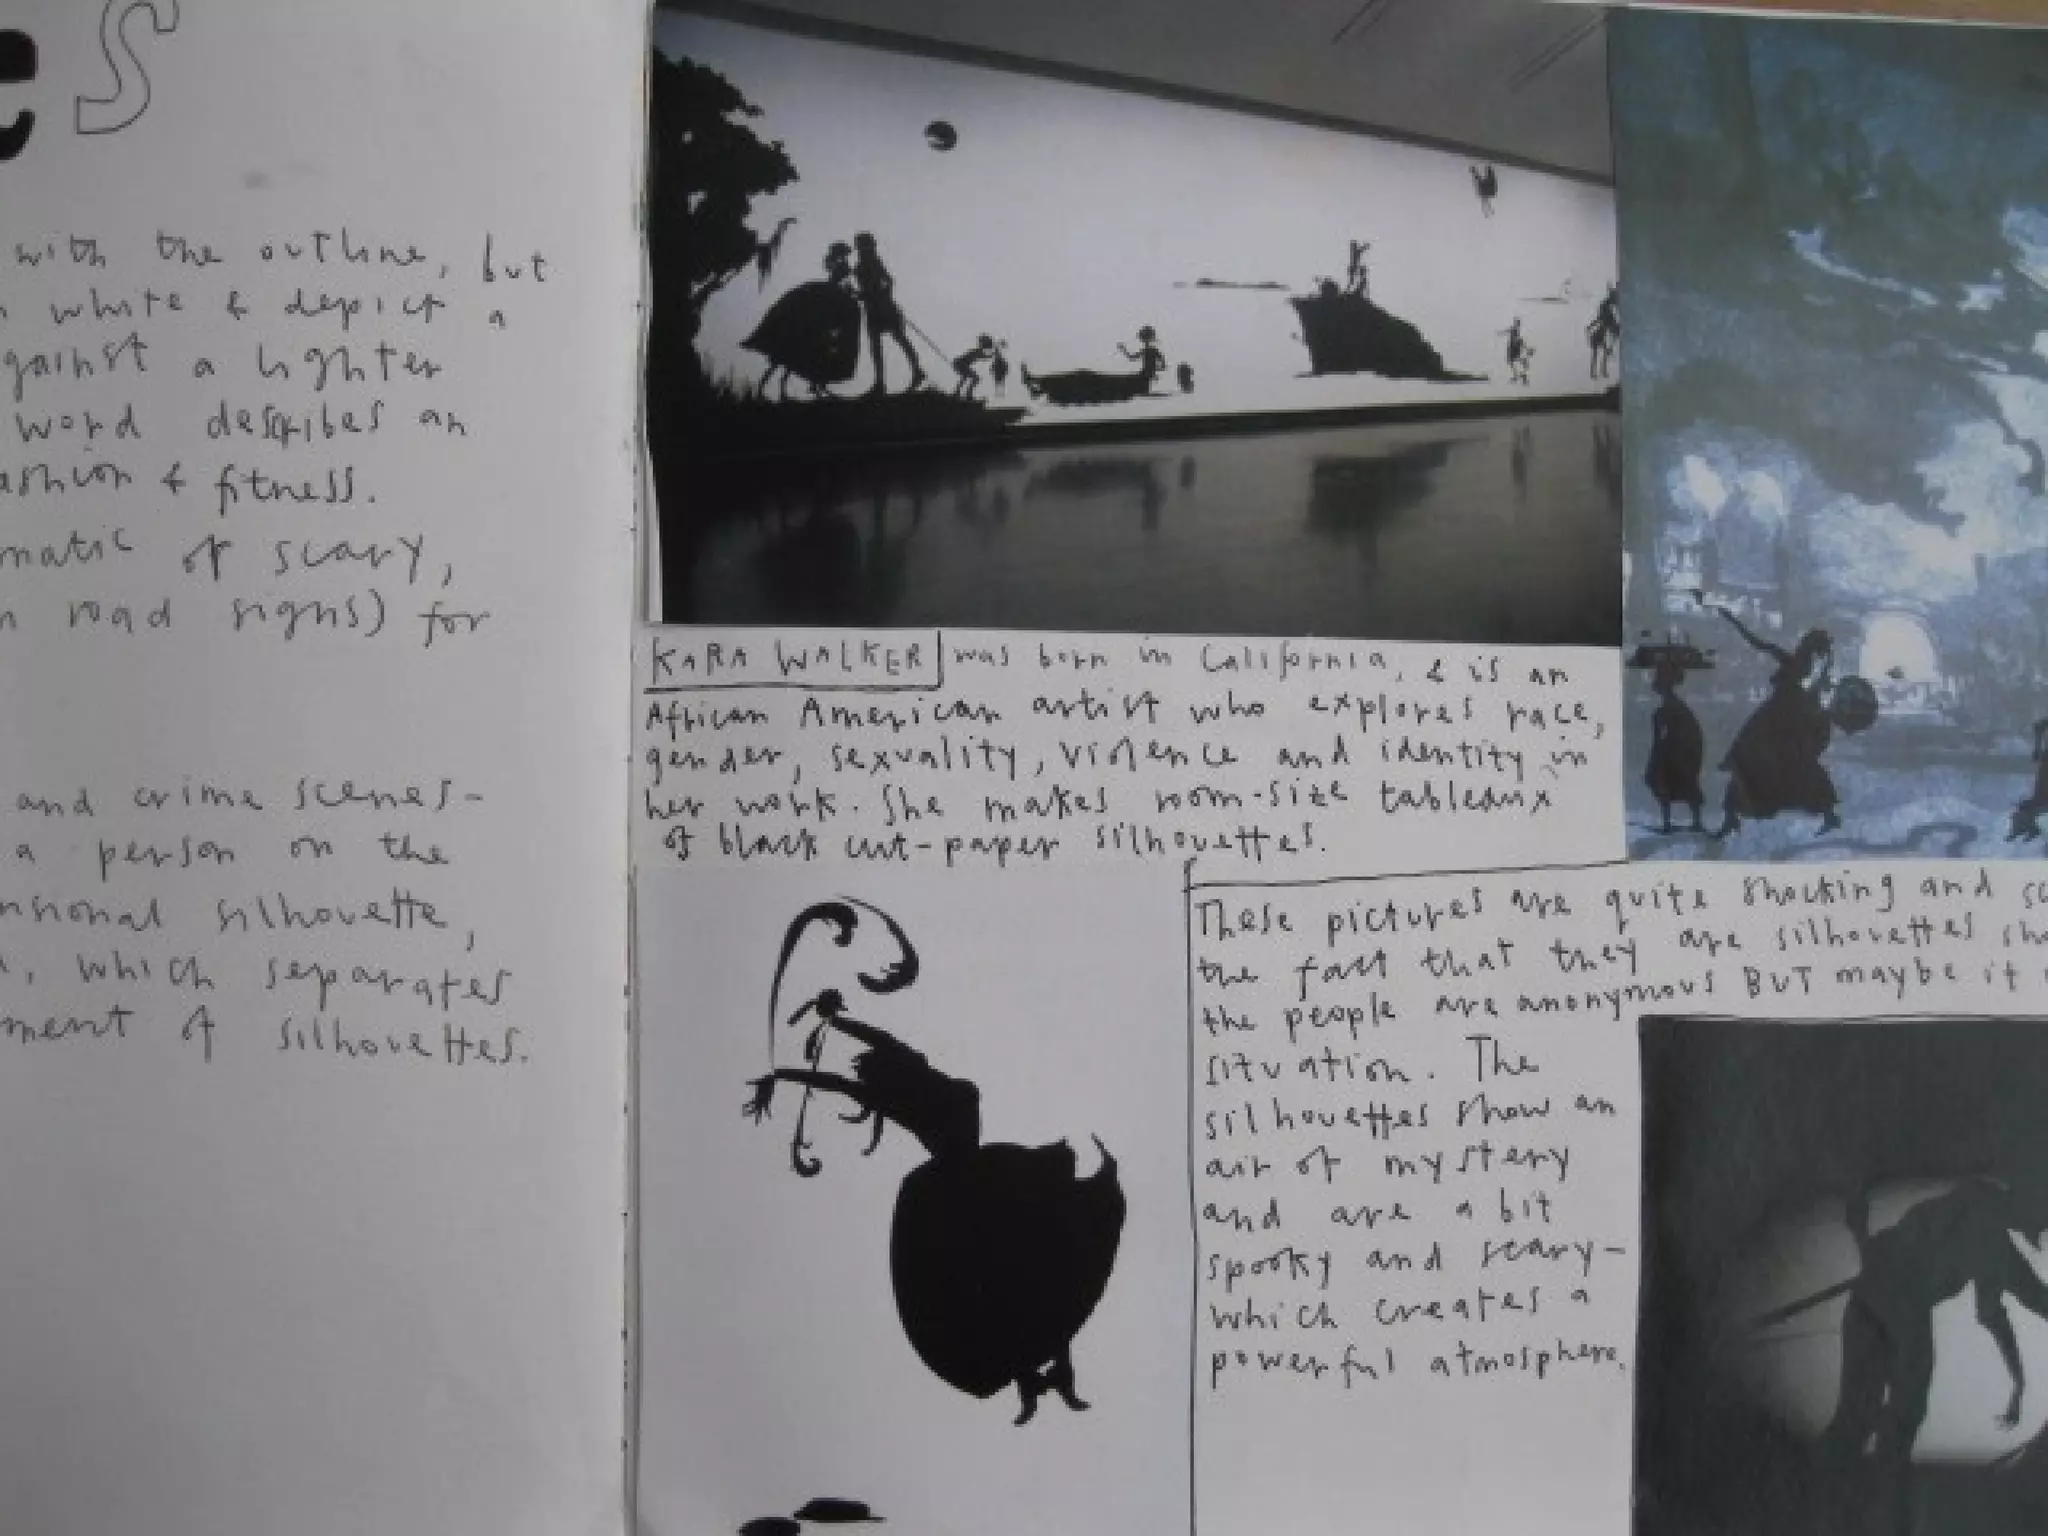 es
with the outline, but
white & depict a
gainst a lighter
word describes an
ashion & fitness.
matic of scary,
n road signs) for
and crime scenes-
a person on the
nsional silhouette,
, which separates
ment of silhouettes.
KARA WALKER was born in California, & is an
African American artist who explores race,
gender, sexuality, violence and identity in
her work. She makes room-size tableaux
of black cut-paper silhouettes.
These pictures are quite shocking and sc
the fact that they are silhouettes sho
the people are anonymous BUT maybe it
situation. The
silhouettes show an
air of mystery
and are a bit
spooky and scary-
which creates a
powerful atmosphere.